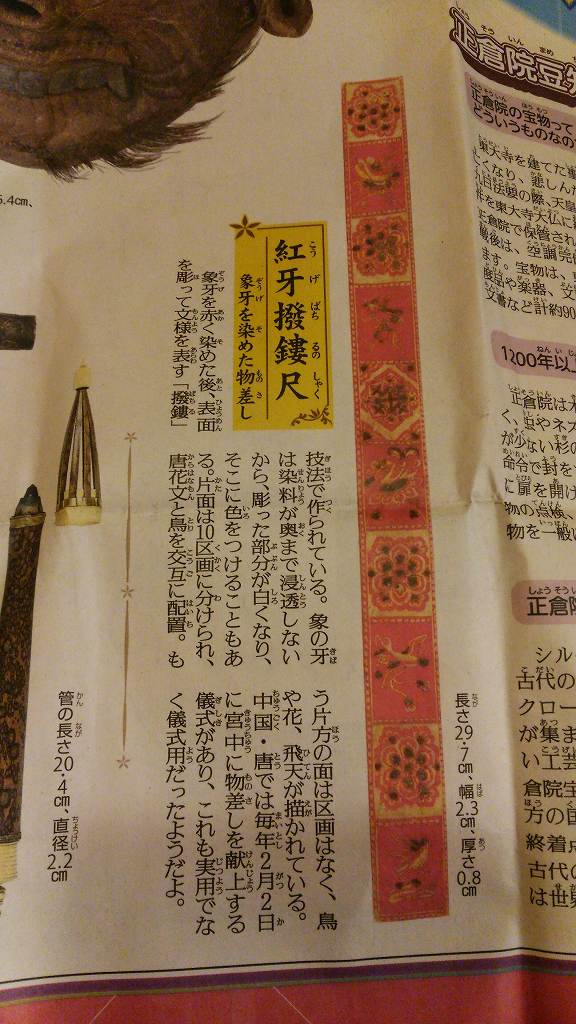 正倉院豆
正倉院の宝物って
どういうものなの
東大寺を建てた
亡くなり、悲しんだ
日法要の際、天皇
件を東大寺大仏に
正倉院で保管され
最後は、空調完
ます。宝物は、
度品や楽器、文
文書など計約90
1200年以
正倉院は木
く、虫やネズ
が少ない杉の
命令で封を
に扉を開け
物の点検、
物を一般に
正倉院
シル
古代の
クロー
が集ま
い工芸
倉院宝
方の国
終着点
古代の
は世界
長さ29・7㎝、幅
2.3㎝、厚さ0.8
㎝
紅牙撥鏤尺
こうげばちるのしゃく
象牙を染めた物差し
象牙を赤く染めた後、表面
を彫って文様を表す「撥鏤」
技法で作られている。象の牙
は染料が奥まで浸透しない
から、彫った部分が白くなり、
そこに色をつけることもあ
る。片面は10区画に分けられ、
唐花文と鳥を交互に配置。も
う片方の面は区画はなく、鳥
や花、飛天が描かれている。
中国・唐では毎年2月2日
に宮中に物差しを献上する
儀式があり、これも実用でな
く儀式用だったようだよ。
管の長さ20・4㎝、直径
2.2㎝
5.4㎝、